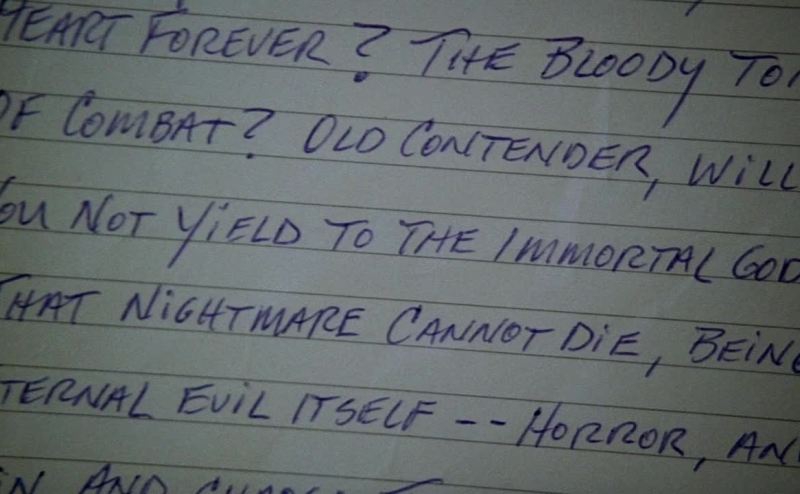 HEART FOREVER? THE BLOODY TO
OF COMBAT? OLD CONTENDER, WILL
YOU NOT YIELD TO THE IMMORTAL GOD
THAT NIGHTMARE CANNOT DIE, BEING
TERNAL EVIL ITSELF -- HORROR, AN
AND